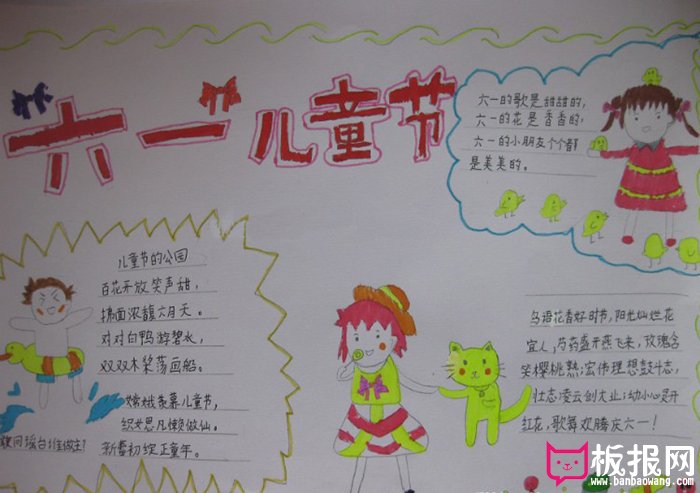 六一儿童节
六一的歌是甜甜的,
六一的花是香香的,
六一的小朋友个个都
是美美的。
儿童节的公园
百花开放笑声甜,
拂面浓馥六月天。
对对白鸭游碧水,
双双木桨荡画船。
嫦娥羡慕儿童节,
织女思凡懒做仙。
瑶台谁做主?
新雷初绽正童年。
鸟语花香好时节,阳光灿烂花
宜人,芍药盛开燕飞来,玫瑰含
笑樱桃熟;宏伟理想鼓斗志,
壮志凌云创大业;幼小心灵开
红花,歌舞欢腾庆六一!
板报网
www.banbaowang.com